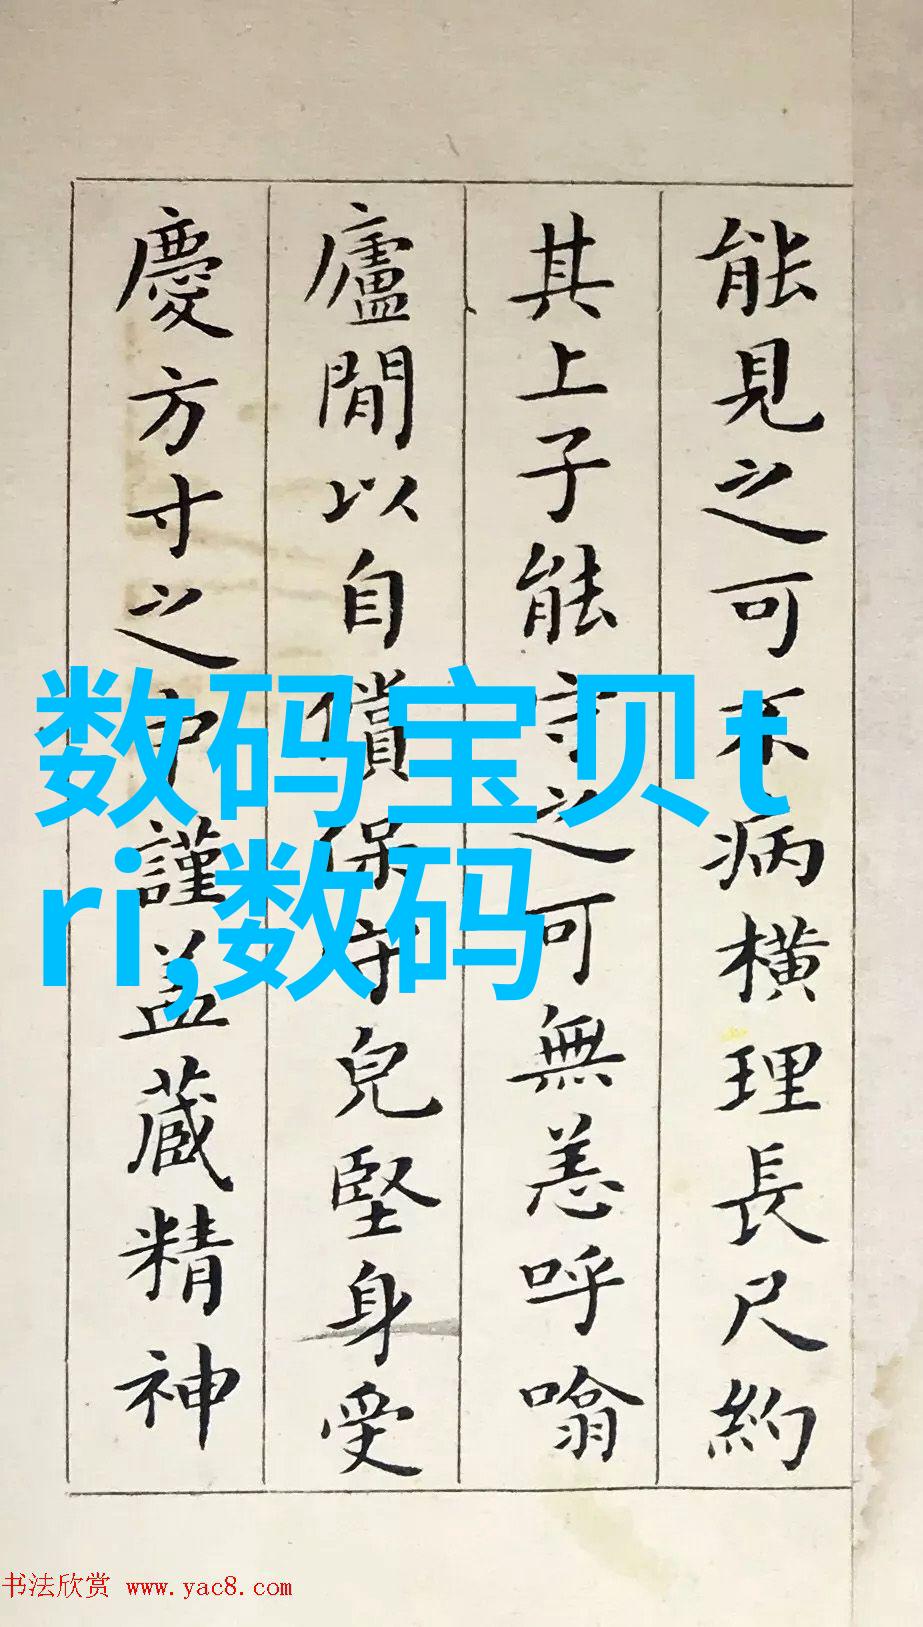 能見之可不病橫理長尺約
其上子能守之可無恙呼噏
廬間以自償保守兒堅身受
慶方寸之中謹盖藏精神
数码宝贝t
ri,数码
书法欣赏 www.yac8.com